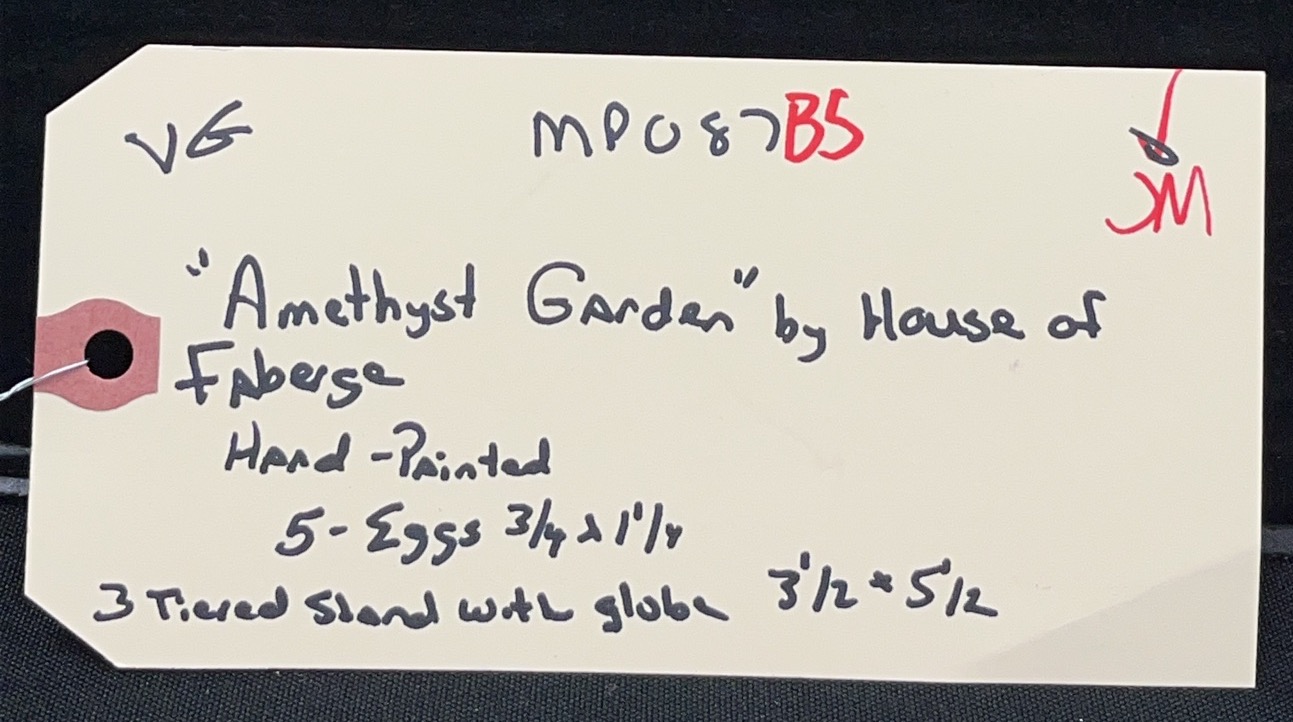 VG MP087BS
JM
"Amethyst Garden" by House of
Faberge
Hand-Painted
5- Eggs 3/4 x 1 1/4
3 Tiered Stand with globe 3 1/2 x 5 1/2